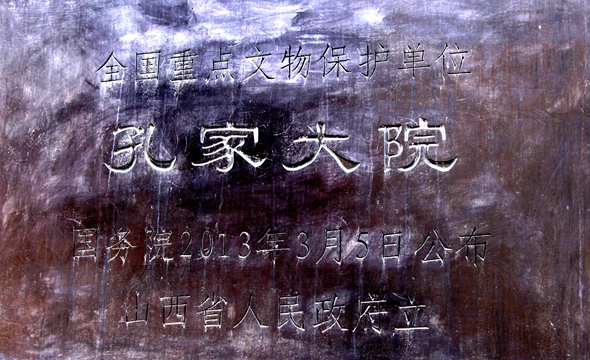 全国重点文物保护单位
孔家大院
国务院2013年3月5日公布
山西省人民政府立